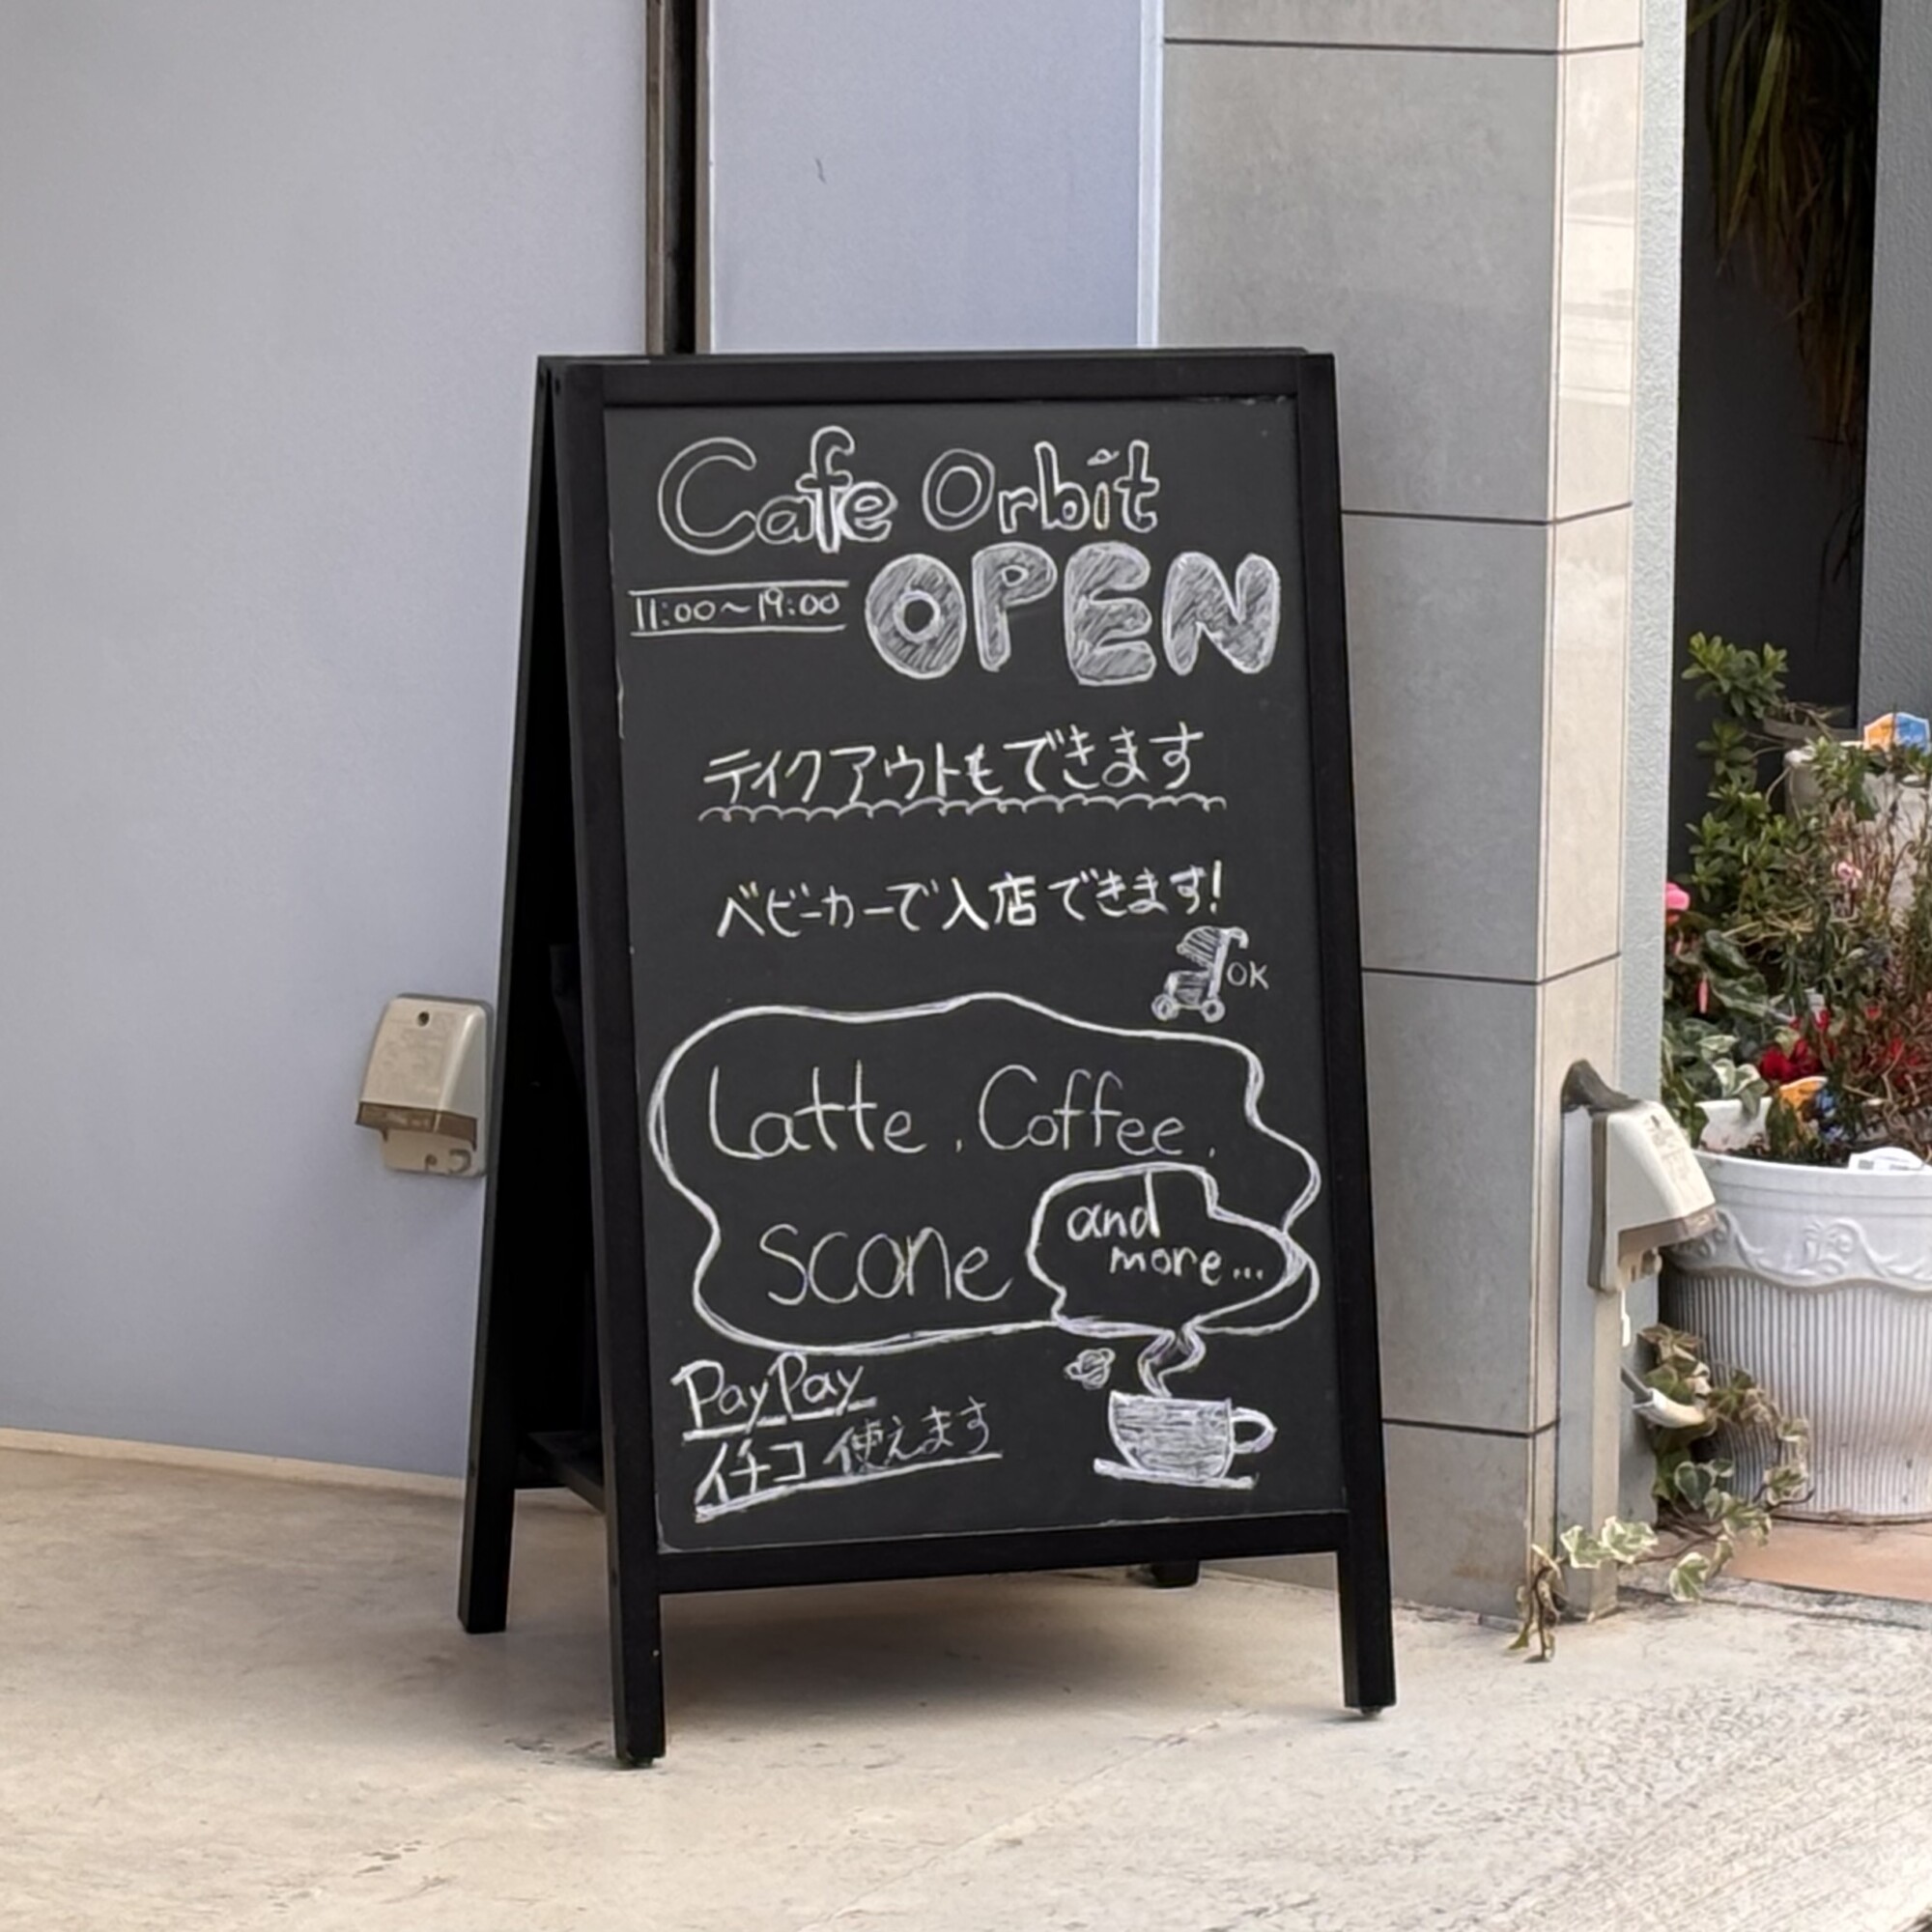 Cafe Orbit
11:00～19:00 OPEN
テイクアウトもできます
ベビーカーで入店できます!
OK
Latte, Coffee,
Scone
and
more...
PayPay
イチコ 使えます